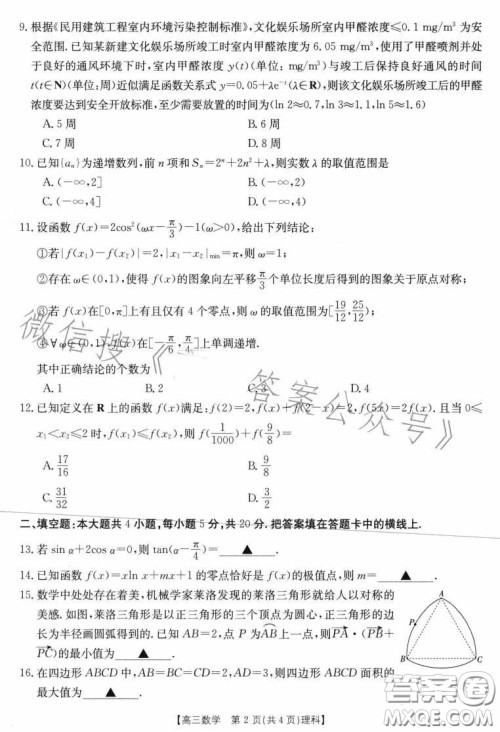 9. 根据《民用建筑工程室内环境污染控制标准》，文化娱乐场所室内甲醛浓度≤0.1 mg/m³ 为安
全范围. 已知某新建文化娱乐场所竣工时室内甲醛浓度为 6.05 mg/m³，使用了甲醛喷剂并处
于良好的通风环境下时，室内甲醛浓度 y(t)（单位：mg/m³）与竣工后保持良好通风的时间
t(t∈N)（单位：周）近似满足函数关系式 y=0.05+λe⁻ᵗ(λ∈R)，则该文化娱乐场所竣工后的甲醛
浓度要达到安全开放标准，至少需要放置的时间为(ln 2≈0.7，ln 3≈1.1，ln 5≈1.6)
A. 5 周 B. 6 周
C. 7 周 D. 8 周
10. 已知{aₙ}为递增数列，前 n 项和 Sₙ=2ⁿ+2n²+λ，则实数 λ 的取值范围是
A. (−∞，2] B. (−∞，2)
C. (−∞，4] D. (−∞，4)
11. 设函数 f(x)=2cos²(ωx−π/3)−1(ω>0)，给出下列结论：
①若|f(x₁)−f(x₂)|=2，|x₁−x₂|min=π，则 ω=1；
②存在 ω∈(0,1)，使得 f(x)的图象向左平移 π/3 个单位长度后得到的图象关于原点对称；
③若 f(x)在[0,π]上有且仅有 4 个零点，则 ω 的取值范围为[19/12，25/12)；
④∀ω∈(0,1)，f(x)在[−π/6，π/4]上单调递增.
其中正确结论的个数为
A. 1 B. 2 C. 3 D. 4
12. 已知定义在 R 上的函数 f(x)满足：f(2)=2，f(x)+f(2−x)=2，f(5x)=2f(x). 且当 0≤
x₁<x₂≤2 时，f(x₁)≤f(x₂)，则 f(1/1000)+f(9/8)=
A. 17/16 B. 9/8
C. 31/32 D. 33/32
二、填空题：本大题共 4 小题，每小题 5 分，共 20 分. 把答案填在答题卡中的横线上.
13. 若 sin α+2cos α=0，则 tan(α−π/4)=▲.
14. 已知函数 f(x)=xln x+mx+1 的零点恰好是 f(x)的极值点，则 m=▲.
15. 数学中处处存在着美，机械学家莱洛发现的莱洛三角形就给人以对称的
美感. 如图，莱洛三角形是以正三角形的三个顶点为圆心，正三角形的边
长为半径画圆弧得到的. 已知 AB=2，点 P 为AB上一点，则PA·(PB+
PC)的最小值为▲.
A
B
C
16. 在四边形 ABCD 中，AB=BC=CD=2，AD=3，则四边形 ABCD 面积的
最大值为▲.
【高三数学 第 2 页(共 4 页)理科】
微信搜《
答案公众号》
答案圈
MXQE.COM